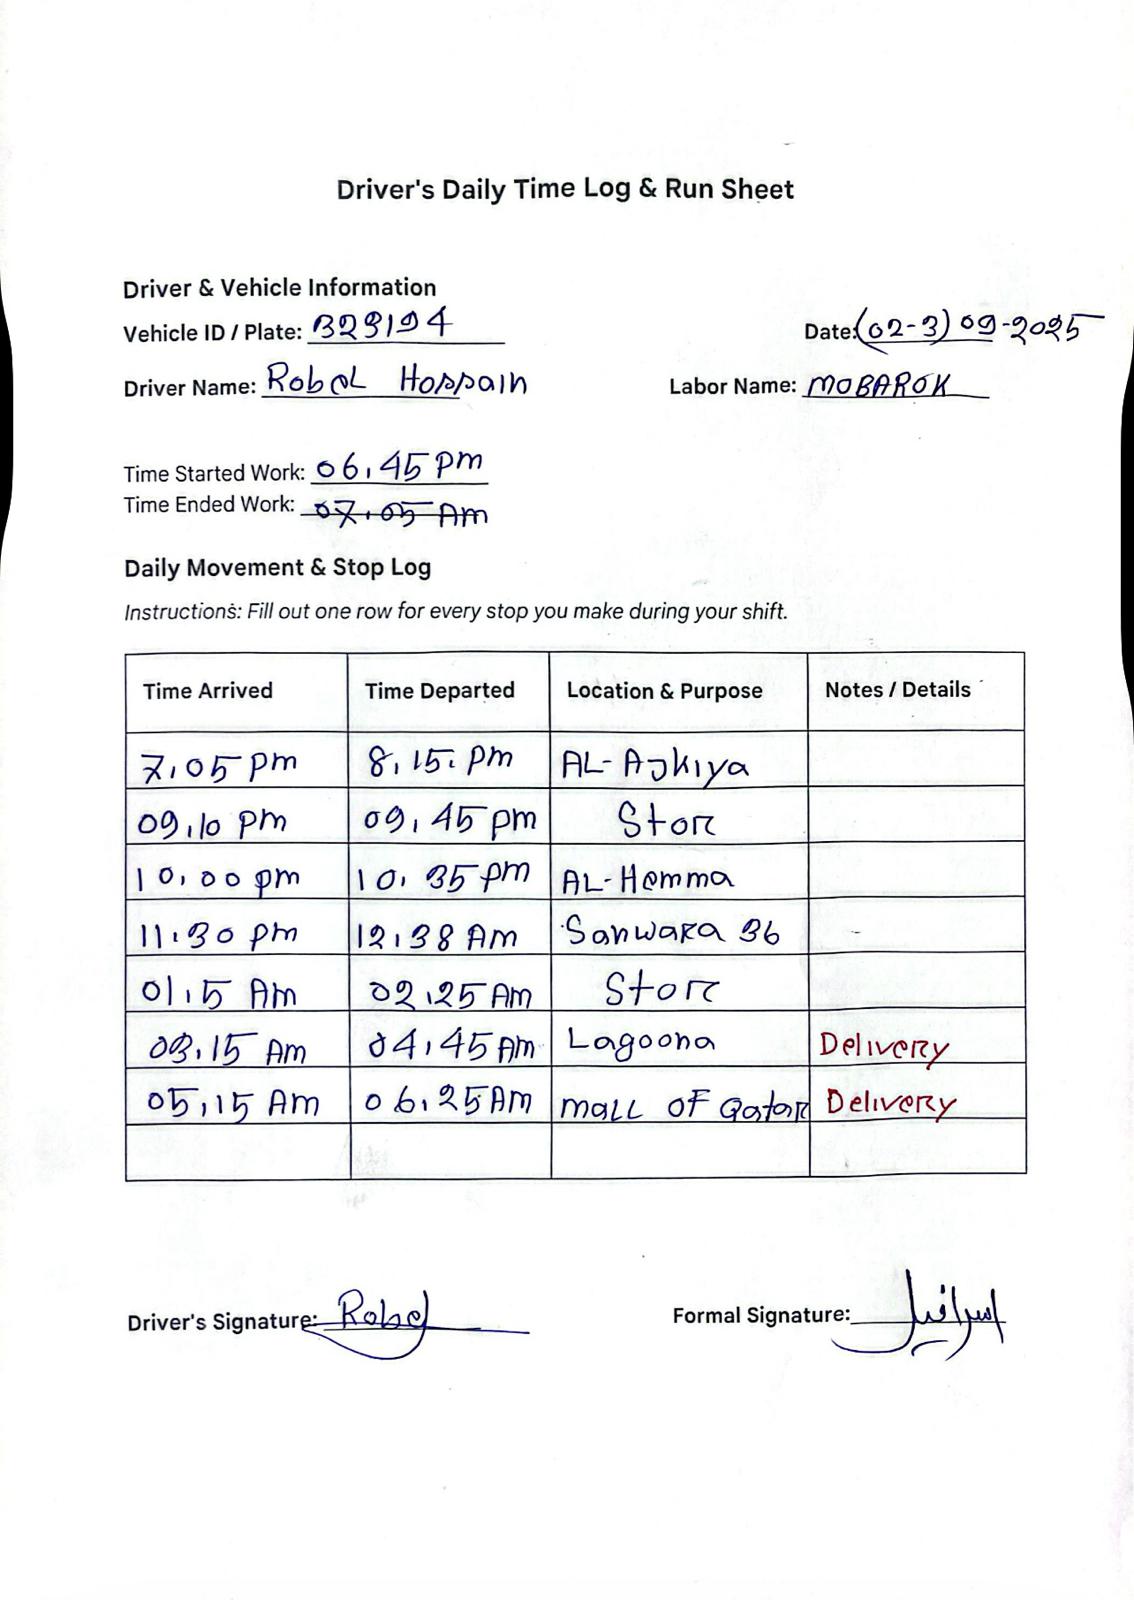 Driver's Daily Time Log & Run Sheet
Driver & Vehicle Information
Vehicle ID / Plate: 323194 Date: (02-3) 09-2025
Driver Name: Robel Hossain Labor Name: MOBAROK
Time Started Work: 06.45 Pm
Time Ended Work: 07.05 Am
Daily Movement & Stop Log
Instructions: Fill out one row for every stop you make during your shift.
Time Arrived Time Departed Location & Purpose Notes / Details
7.05 pm 8.15. pm AL-Ajkiya
09.10 pm 09.45 pm Stor
10.00 pm 10.35 pm AL-Hemma
11.30 pm 12.38 Am Sanwara 36
01.15 Am 02.25 Am Stor
03.15 Am 04.45 Am Lagoona Delivery
05.15 Am 06.25 Am mall OF Qatar Delivery
Driver's Signature: Robel Formal Signature: